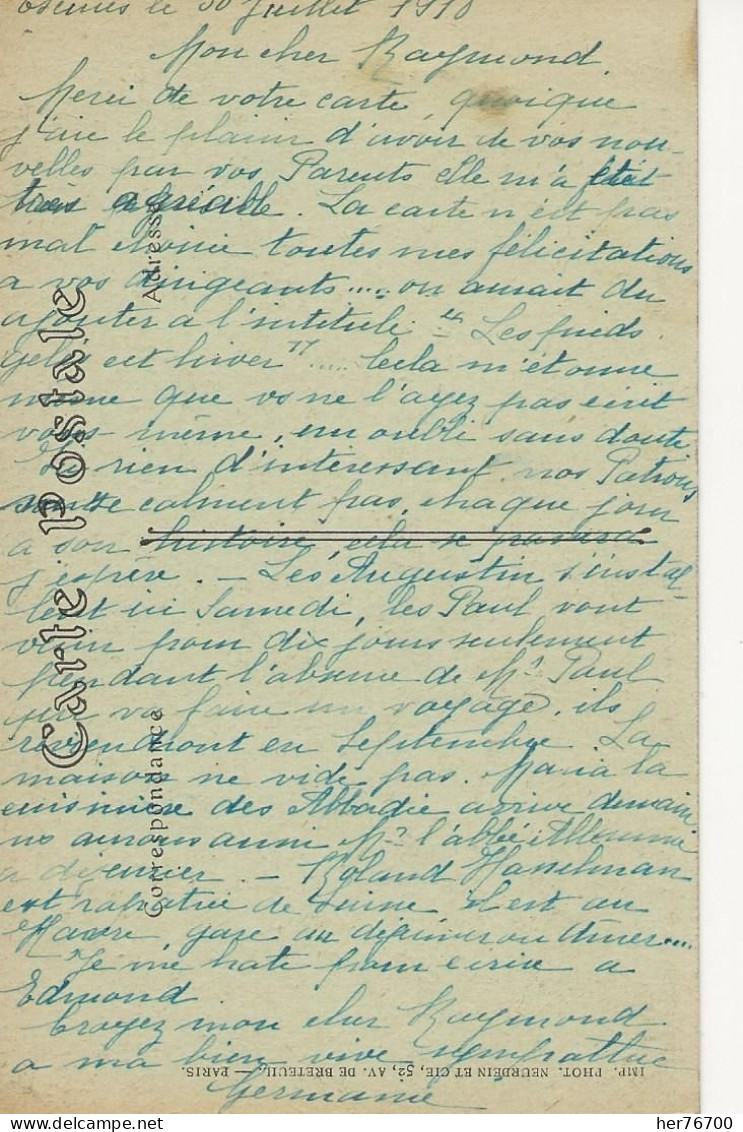 le 30 Juillet 1918
Mon cher Raymond
Merci de votre carte, quoique
j'aie le plaisir d'avoir de vos nou-
velles par vos Parents elle m'a été
très agréable. La carte n'est pas
mal choisie toutes mes félicitations
a vos dirigeants..... on aurait du
ajouter a l'intitulé "Les pieds
gelés cet hiver"..... Cela m'étonne
même que vs ne l'ayez pas écrit
vous même, un oubli sans doute
rien d'intéressant nos Patrons
se calment pas, chaque jour
a son histoire, cela se passera
j'espère. - Les Augustin s'instal-
lent ici Samedi, les Paul vont
venir pour dix jours seulement
pendant l'absence de Mr Paul
qui va faire un voyage, ils
reviendront en Septembre. La
maison ne vide pas. Maria la
cuisinière des Abbadie arrive demain
ns aurons aussi Mr l'abbé
a déjeuner. - Roland Hasselman
est rapatrié de Suisse il est au
Havre, gare au
Je me hate pour écrire a
Edmond.
Croyez mon cher Raymond
a ma bien vive sympathie
Germaine
Carte Postale
Correspondance
Adresse
IMP. PHOT. NEURDEIN ET CIE, 52, AV. DE BRETEUIL. — PARIS.
her76700